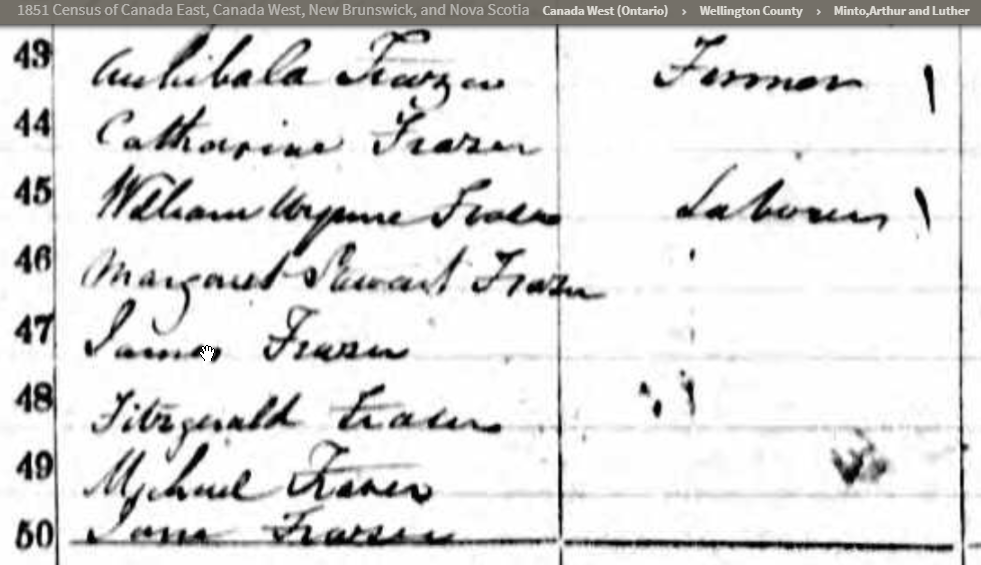 1851 Census of Canada East, Canada West, New Brunswick, and Nova Scotia Canada West (Ontario) › Wellington County › Minto,Arthur and Luther
43 Archibald Frazer Farmer
44 Catharine Frazer
45 William Wynne Frazer Laborer
46 Margaret Stewart Frazer
47 James Frazer
48 Fitzgerald Fraser
49 Michael Frazer
50 Jane Frazer